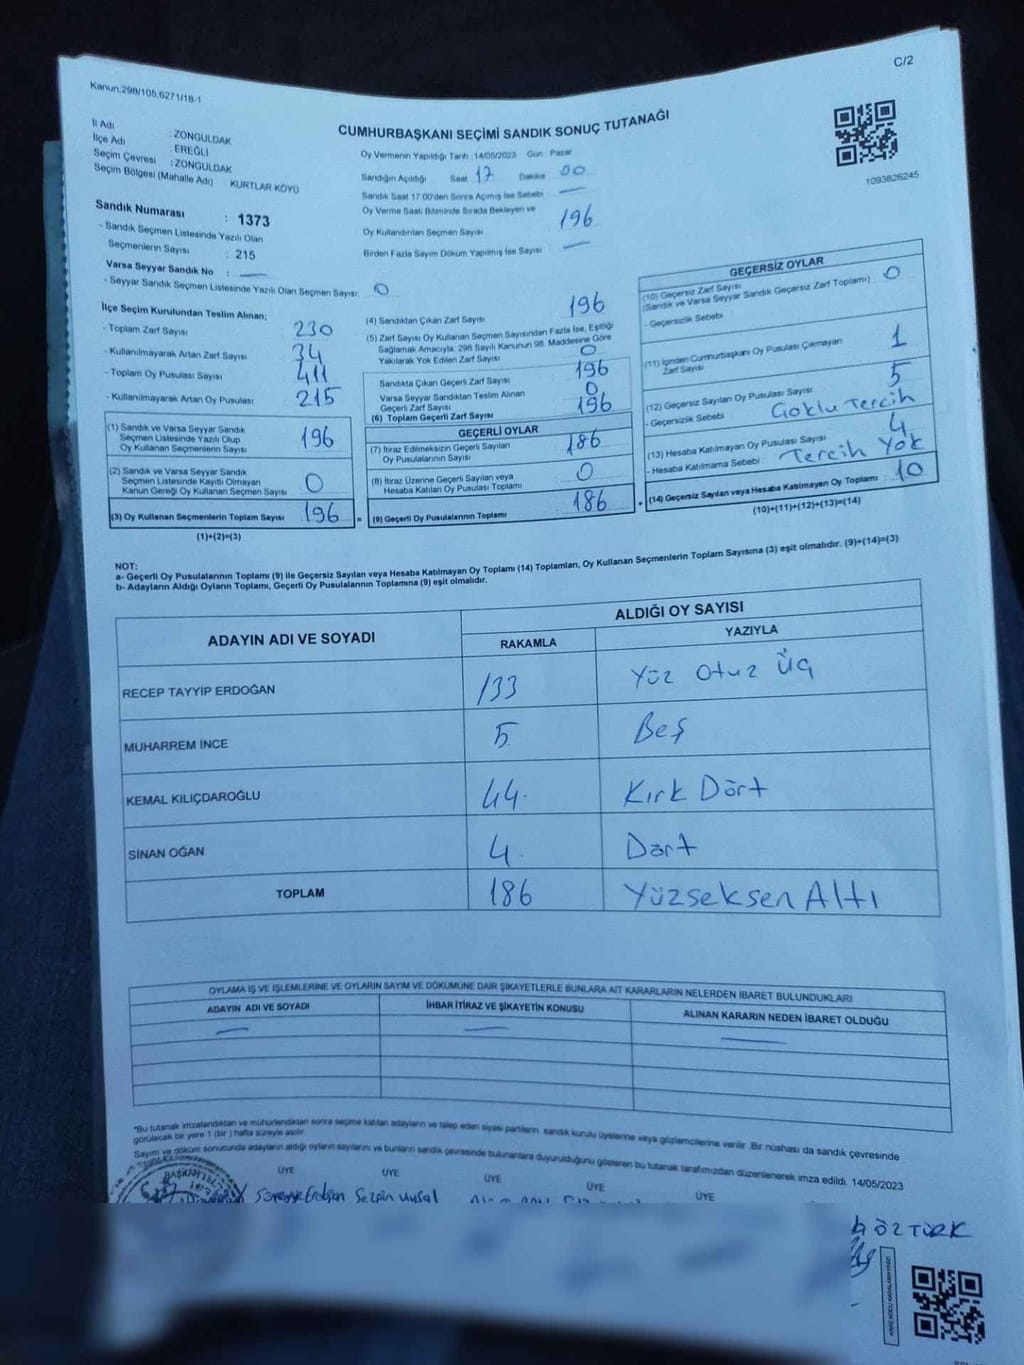 C/2
Kanun:298/105,6271/18-1
CUMHURBAŞKANI SEÇİMİ SANDIK SONUÇ TUTANAĞI
1093826245
İl Adı : ZONGULDAK
İlçe Adı : EREĞLİ
Seçim Çevresi : ZONGULDAK
Seçim Bölgesi (Mahalle Adı) KURTLAR KÖYÜ
Sandık Numarası : 1373
- Sandık Seçmen Listesinde Yazılı Olan
Seçmenlerin Sayısı : 215
Varsa Seyyar Sandık No : —
- Seyyar Sandık Seçmen Listesinde Yazılı Olan Seçmen Sayısı: 0
Oy Vermenin Yapıldığı Tarih : 14/05/2023 Gün : Pazar
Sandığın Açıldığı Saat 17 Dakika 00
Sandık Saat 17:00'den Sonra Açımış İse Sebebi —
Oy Verme Saati Bitiminde Sırada Bekleyen ve
Oy Kullandırılan Seçmen Sayısı 196
Birden Fazla Sayım Döküm Yapılmış İse Sayısı : —
İlçe Seçim Kurulundan Teslim Alınan;
- Toplam Zarf Sayısı 230
- Kullanılmayarak Artan Zarf Sayısı 34
- Toplam Oy Pusulası Sayısı 411
- Kullanılmayarak Artan Oy Pusulası 215
(1) Sandık ve Varsa Seyyar Sandık
Seçmen Listesinde Yazılı Olup
Oy Kullanan Seçmenlerin Sayısı 196
(2) Sandık ve Varsa Seyyar Sandık
Seçmen Listesinde Kayıtlı Olmayan
Kanun Gereği Oy Kullanan Seçmen Sayısı 0
(3) Oy Kullanan Seçmenlerin Toplam Sayısı 196 =
(1)+(2)=(3)
(4) Sandıktan Çıkan Zarf Sayısı 196
(5) Zarf Sayısı Oy Kullanan Seçmen Sayısından Fazla İse, Eşitliği
Sağlamak Amacıyla; 298 Sayılı Kanunun 98. Maddesine Göre
Yakılarak Yok Edilen Zarf Sayısı 0
Sandıkta Çıkan Geçerli Zarf Sayısı 196
Varsa Seyyar Sandıktan Teslim Alınan
Geçerli Zarf Sayısı 0
(6) Toplam Geçerli Zarf Sayısı 196
GEÇERLİ OYLAR
(7) İtiraz Edilmeksizin Geçerli Sayılan
Oy Pusulalarının Sayısı 186
(8) İtiraz Üzerine Geçerli Sayılan veya
Hesaba Katılan Oy Pusulası Toplamı 0
(9) Geçerli Oy Pusulalarının Toplamı 186 +
GEÇERSİZ OYLAR
(10) Geçersiz Zarf Sayısı
(Sandık ve Varsa Seyyar Sandık Geçersiz Zarf Toplamı) 0
- Geçersizlik Sebebi
(11) İçinden Cumhurbaşkanı Oy Pusulası Çıkmayan
Zarf Sayısı 1
(12) Geçersiz Sayılan Oy Pusulası Sayısı 5
- Geçersizlik Sebebi Goklu Tercih
(13) Hesaba Katılmayan Oy Pusulası Sayısı 4
- Hesaba Katılmama Sebebi : Tercih Yok
(14) Geçersiz Sayılan veya Hesaba Katılmayan Oy Toplamı : 10
(10)+(11)+(12)+(13)=(14)
NOT:
a- Geçerli Oy Pusulalarının Toplamı (9) ile Geçersiz Sayılan veya Hesaba Katılmayan Oy Toplamı (14) Toplamları, Oy Kullanan Seçmenlerin Toplam Sayısına (3) eşit olmalıdır. (9)+(14)=(3)
b- Adayların Aldığı Oyların Toplamı, Geçerli Oy Pusulalarının Toplamına (9) eşit olmalıdır.
ADAYIN ADI VE SOYADI ALDIĞI OY SAYISI
RAKAMLA YAZIYLA
RECEP TAYYİP ERDOĞAN 133 Yüz Otuz Üç
MUHARREM İNCE 5 Beş
KEMAL KILIÇDAROĞLU 44. Kırk Dört
SİNAN OĞAN 4. Dört
TOPLAM 186 Yüzseksen Altı
OYLAMA İŞ VE İŞLEMLERİNE VE OYLARIN SAYIM VE DÖKÜMÜNE DAİR ŞİKAYETLERLE BUNLARA AİT KARARLARIN NELERDEN İBARET BULUNDUKLARI
ADAYIN ADI VE SOYADI İHBAR İTİRAZ VE ŞİKAYETİN KONUSU ALINAN KARARIN NEDEN İBARET OLDUĞU
— — —
*Bu tutanak imzalandıktan ve mühürlendikten sonra seçime katılan adayların ve talep eden siyasi partilerin sandık kurulu üyelerine veya gözlemcilerine verilir. Bir nüshası da sandık çevresinde
görülecek bir yere 1 (bir) hafta süreyle asılır.
Sayım ve döküm sonucunda adayların aldığı oyların sayılarını ve bunların sandık çevresinde bulunanlara duyurulduğunu gösteren bu tutanak tarafımızdan düzenlenerek imza edildi. 14/05/2023
BAŞKAN ÜYE ÜYE ÜYE ÜYE ÜYE
Süreyya Erdoğan Sezgin Uysal
ÖZTÜRK